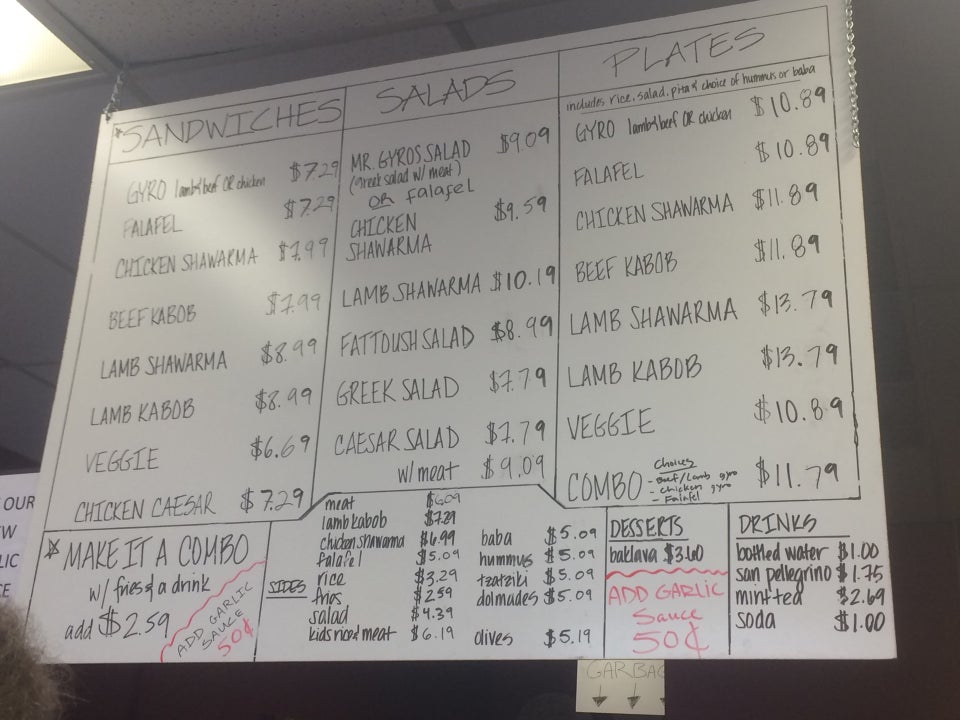 *SANDWICHES
GYRO lamb&beef OR chicken $7.29
FALAFEL $7.29
CHICKEN SHAWARMA $7.99
BEEF KABOB $7.99
LAMB SHAWARMA $8.99
LAMB KABOB $8.99
VEGGIE $6.69
CHICKEN CAESAR $7.29
SALADS
MR. GYROS SALAD $9.09
(greek salad w/ meat)
OR falafel
CHICKEN $9.59
SHAWARMA
LAMB SHAWARMA $10.19
FATTOUSH SALAD $8.99
GREEK SALAD $7.79
CAESAR SALAD $7.79
w/ meat $9.09
PLATES
includes rice, salad, pita & choice of hummus or baba
GYRO lamb&beef OR chicken $10.89
FALAFEL $10.89
CHICKEN SHAWARMA $11.89
BEEF KABOB $11.89
LAMB SHAWARMA $13.79
LAMB KABOB $13.79
VEGGIE $10.89
COMBO $11.79
Choices
- Beef/Lamb gyro
- chicken gyro
- Falafel
* MAKE IT A COMBO
w/ fries & a drink
add $2.59
ADD GARLIC
SAUCE
50¢
SIDES
meat $6.09
lamb kabob $7.29
chicken shawarma $6.99
falafel $5.09
rice $3.29
fries $2.59
salad $4.39
kids rice & meat $6.19
baba $5.09
hummus $5.09
tzatziki $5.09
dolmades $5.09
olives $5.19
DESSERTS
baklava $3.60
ADD GARLIC
Sauce
50¢
DRINKS
bottled water $1.00
san pellegrino $1.75
mint tea $2.69
soda $1.00
OUR
GARBAG